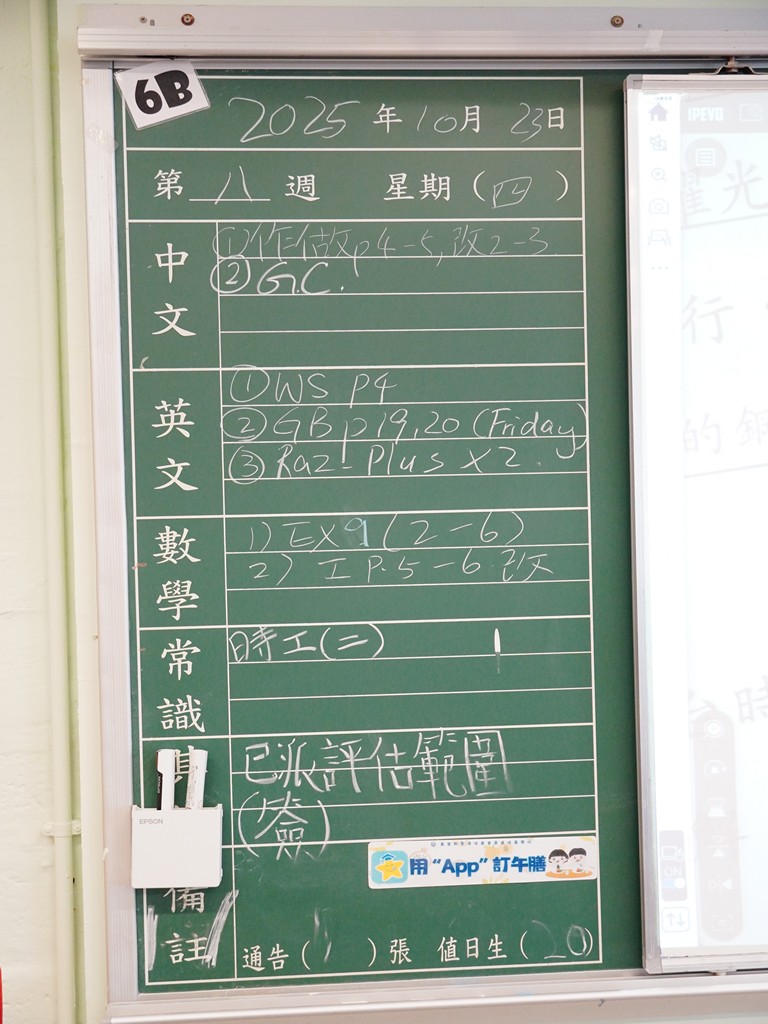 6B
2025 年 10月 23日
第 八 週 星期 ( 四 )
中文
① 作估做p4-5,改2-3
② G.C.
英文
① WS p4
② GB p19,20 (Friday)
③ Raz-Plus x2.
數學
1) EX9 (2-6)
2) 工 P.5-6 改
常識
時工(二)
已派評估範圍
(簽)
EPSON
用 “App” 訂午膳
備註
通告 ( 1 ) 張 值日生 ( 20 )
IPEVO
耀光
行
的鋼
台時
ON